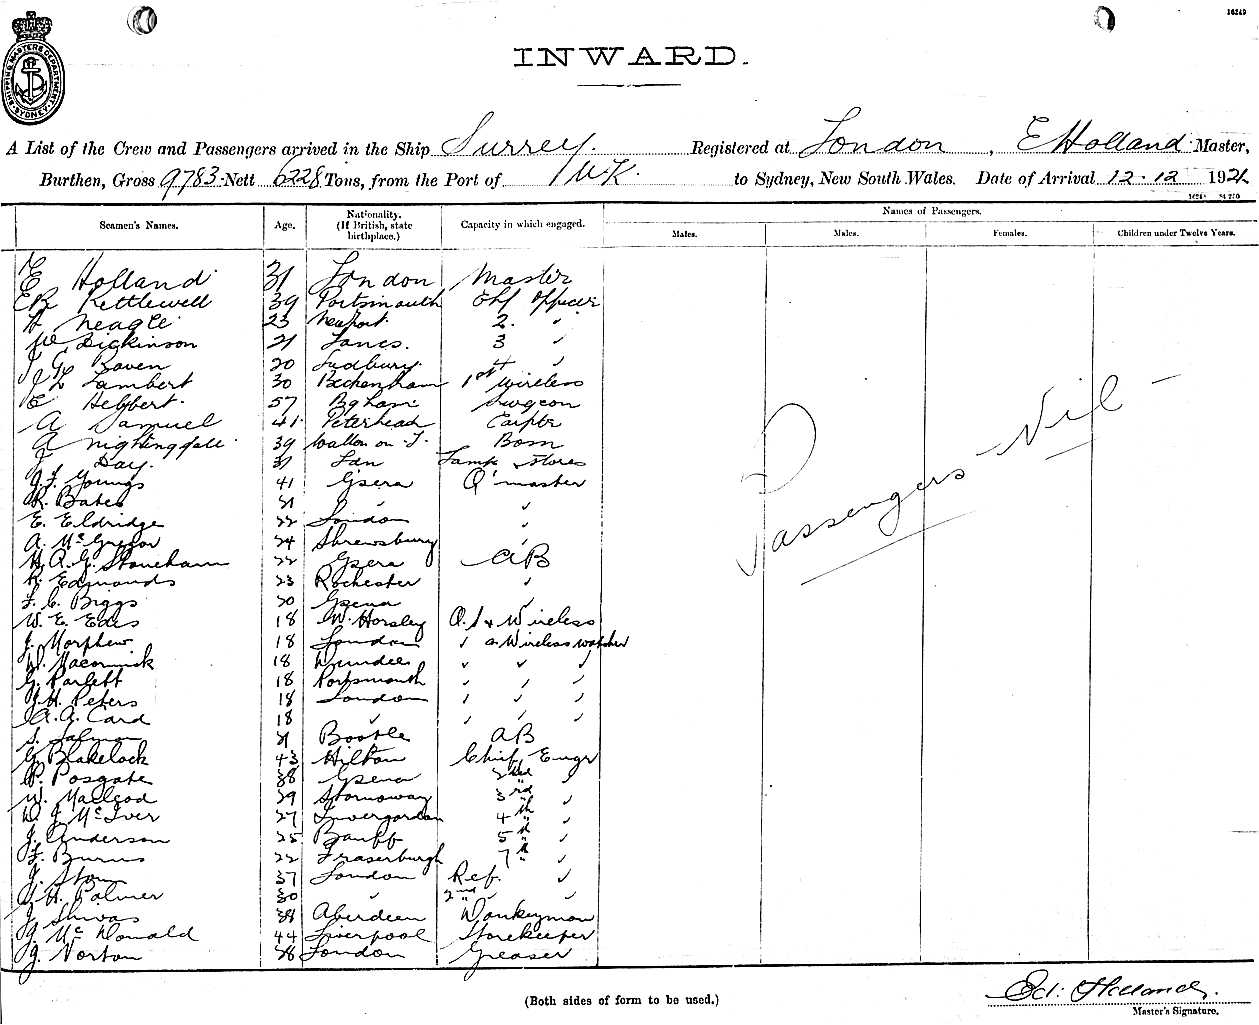 16249
SHIPPING MASTERS DEPARTMENT SYDNEY
INWARD.
A List of the Crew and Passengers arrived in the Ship Surrey. Registered at London, E Holland Master,
Burthen, Gross 9783 Nett 6228 Tons, from the Port of U.K. to Sydney, New South Wales. Date of Arrival 12.12 192
Seamen's Names. Age. Nationality. (If British, state birthplace.) Capacity in which engaged. Names of Passengers.
Males. Males. Females. Children under Twelve Years.
E Holland 31 London Master
Kettlewell 39 Portsmouth Chf Officer
Neagle 23 Newport 2. "
W Dickinson 21 Lancs. 3 "
Raven 20 Sudbury 4 "
Lambert 30 Beckenham 1st Wireless
E 57 Bgham Surgeon
A Samuel 41 Peterhead Carptr
A Nightingale 39 Walton on T. Bosn
Day. 31 Lon Lamps & Stores
Youngs 41 G'sera Q' master
R. Bates 31 " "
E. Eldridge 22 London "
A. McGregor 24 Shrewsbury "
H. A. G. Stoneham 22 AB
R. Edmonds 23 Rochester "
F. C. Biggs 20 "
W. E. Edes 18 W. Horsley O.S & Wireless
J. Morphew 18 London " a Wireless watcher
W. Macormick 18 Dundee " " "
G. Parlett 18 Portsmouth " " "
J. H. Peters 18 London " " "
A. A. Card 18 " " " "
S. Salmon Bootle AB
G. Blakelock 43 Hilton Chief Engr
P. Posgate 38 2nd " "
W. Macleod 29 Stornoway 3rd " "
D. J. McIver 27 Invergordon 4th " "
J. Anderson 25 Banff 5th " "
F. Burns 22 Fraserburgh 7th " "
J. 37 London Ref. "
H. Palmer 30 " 2nd " "
J. Shivas 38 Aberdeen Donkeyman
J. McDonald 44 Liverpool Storekeeper
J. Norton 28 London Greaser
Passengers Nil
(Both sides of form to be used.)
Ed: Holland.
Master's Signature.